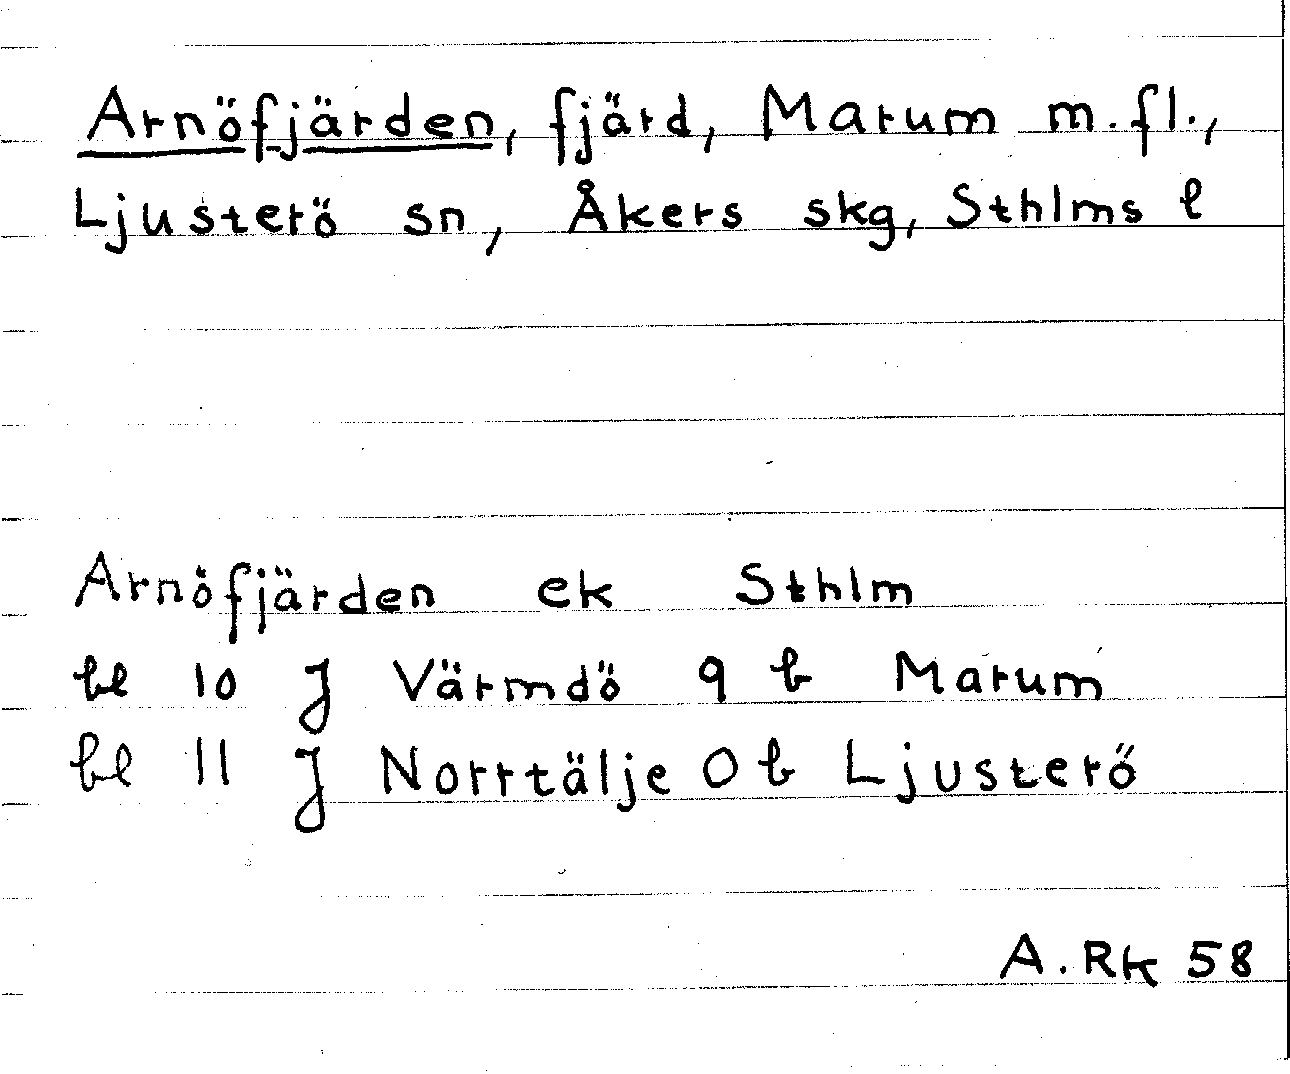 Arnöfjärden, fjärd, Marum m.fl.,
Ljusterö sn, Åkers skg, Sthlms l
Arnöfjärden ek Sthlm
bl 10 J Värmdö 9 b Marum
bl 11 J Norrtälje 0 b Ljusterö
A. Rk 58